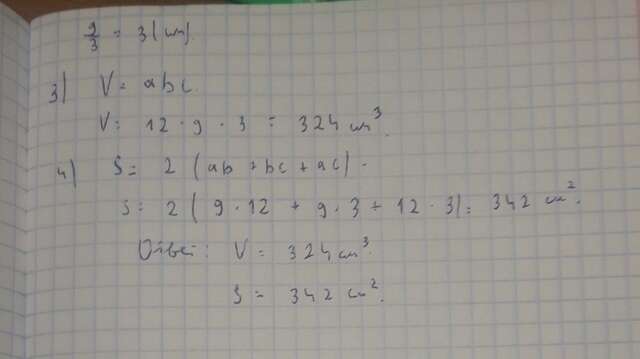 9/3 = 3 (см)
3) V = abc.
V = 12 · 9 · 3 = 324 см³.
4) S = 2 (ab + bc + ac).
S = 2 (9 · 12 + 9 · 3 + 12 · 3) = 342 см².
Ответ: V = 324 см³.
S = 342 см².